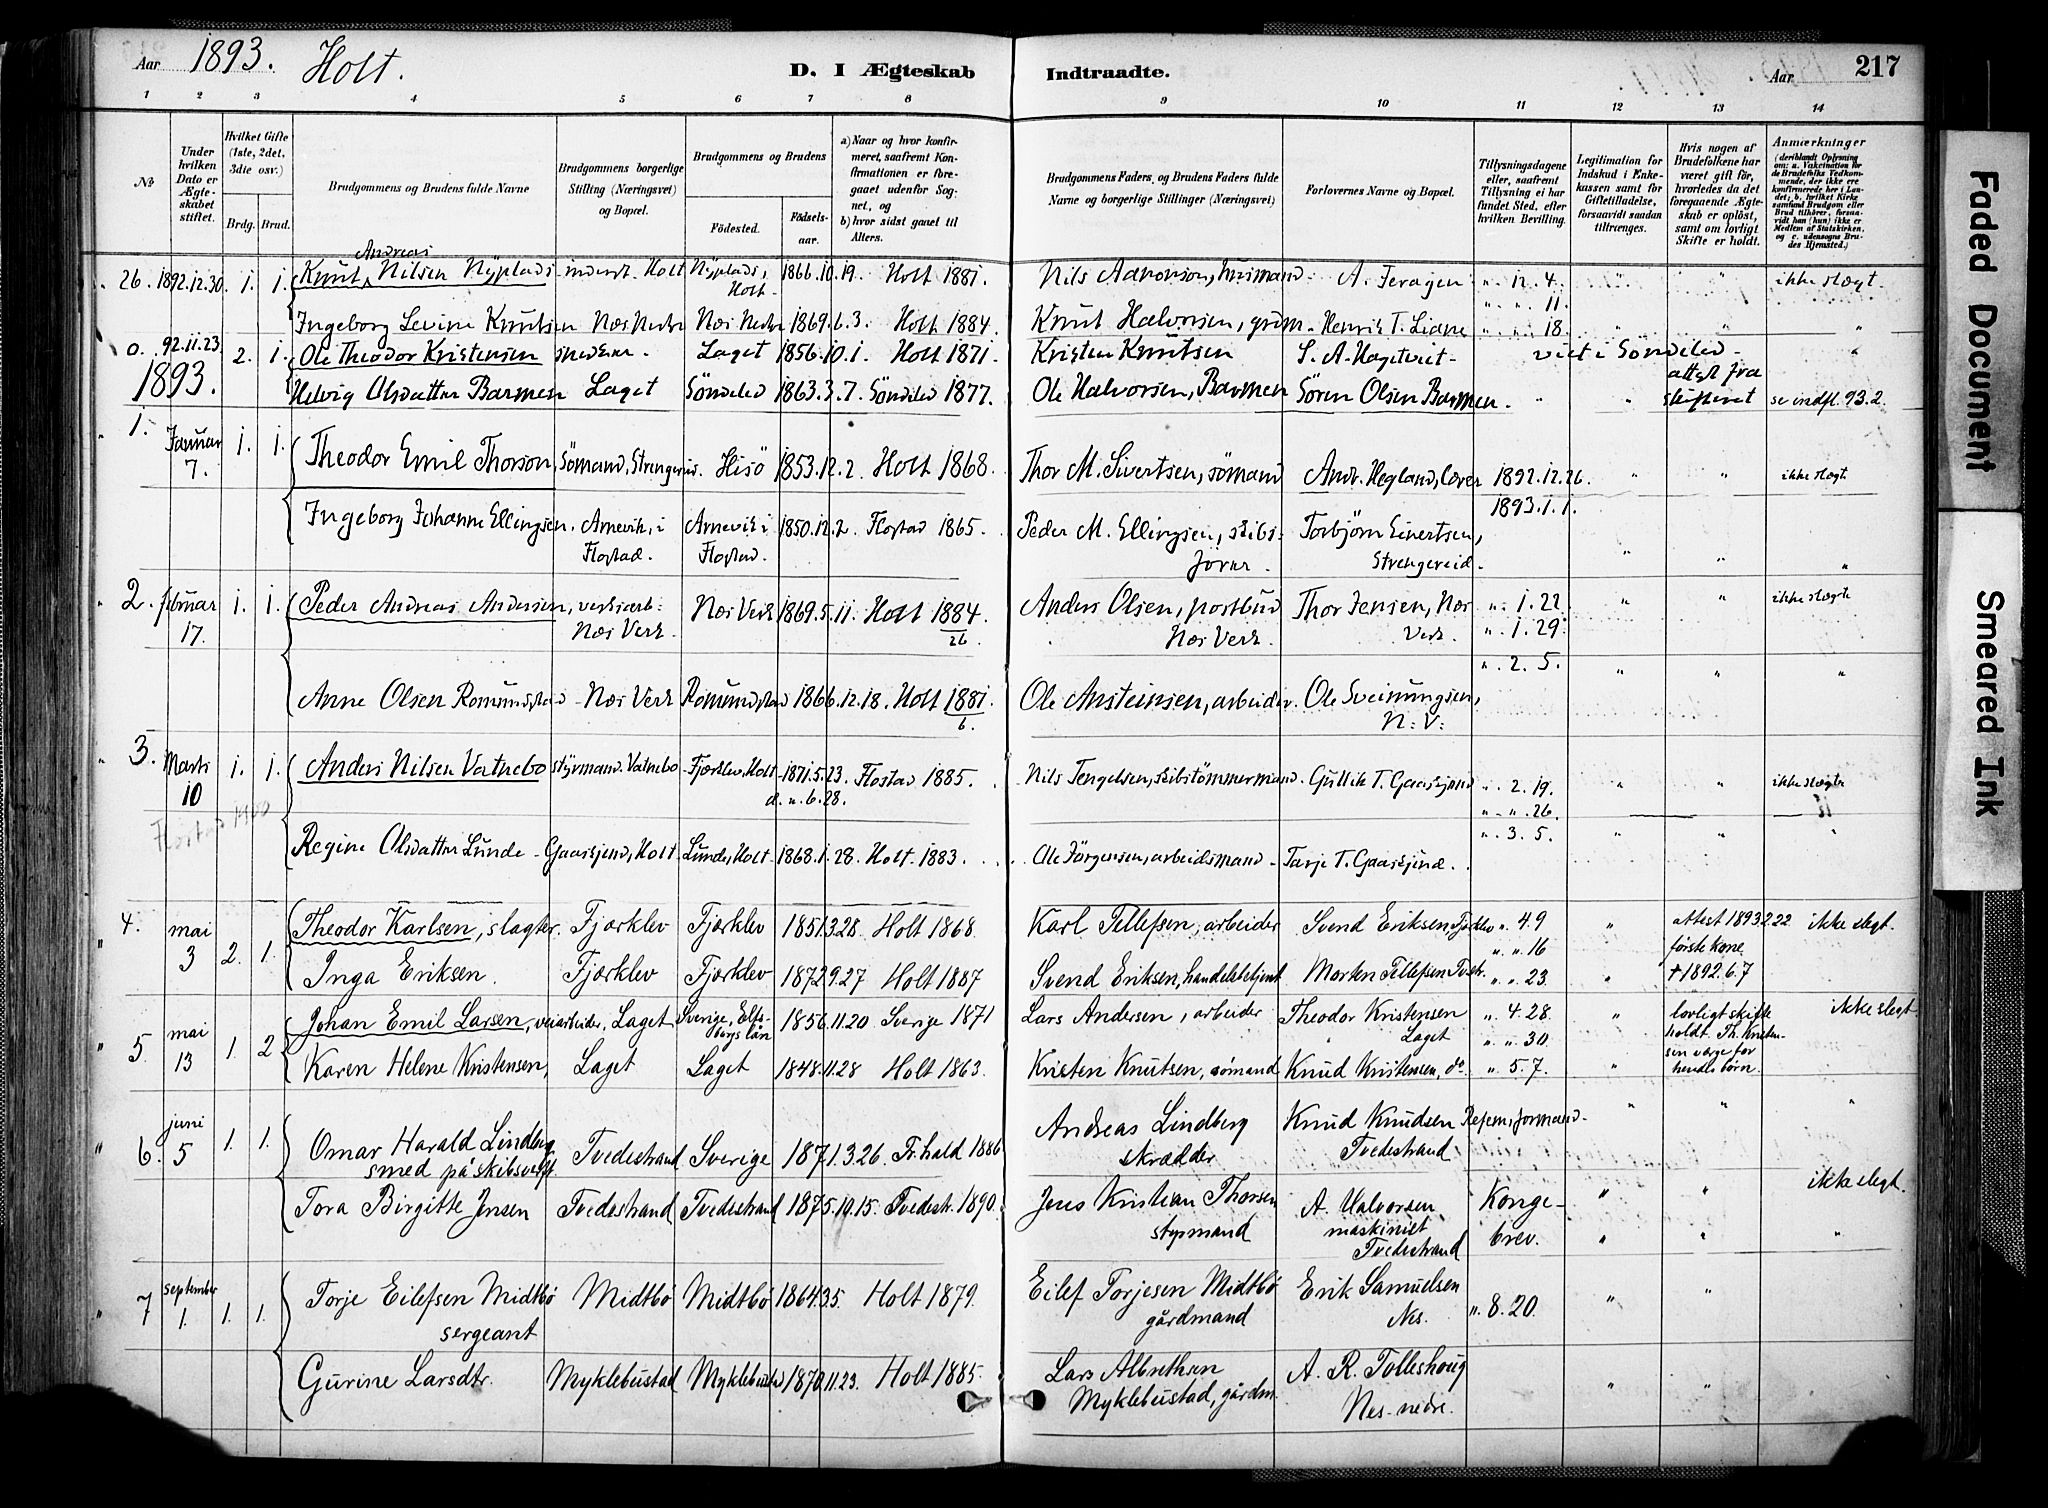 Aar 1893. Holt.
D. I Ægteskab Indtraadte.
Aar 217
1 2 3 4 5 6 7 8 9 10 11 12 13 14
No
Under hvilken Dato er Ægteskabet stiftet.
Hvilket Gifte (1ste, 2det, 3die osv.)
Brdg. Brud.
Brudgommens og Brudens fulde Navne
Brudgommens borgerlige Stilling (Næringsvei) og Bopæl.
Brudgommens og Brudens
Fødested. Fødselsaar.
a) Naar og hvor konfirmeret, saafremt Konfirmationen er foregaaet udenfor Sognet, og
b) hvor sidst gaaet til Alters.
Brudgommens Faders og Brudens Faders fulde Navne og borgerlige Stillinger (Næringsvei)
Forlovernes Navne og Bopæl.
Tillysningsdagene eller, saafremt Tillysning ei har fundet Sted, efter hvilken Bevilling.
Legitimation for Indskud i Enkekassen samt for Giftetilladelse, forsaavidt saadan tiltrænges.
Hvis nogen af Brudefolkene har været gift før, hvorledes da det foregaaende Ægteskab er opløst, samt om lovligt Skifte er holdt.
Anmærkninger
(deriblandt Oplysning om: a. Vaccination for de Brudefolks Vedkommende, der ikke ere konfirmerede her i Landet; b. hvilket Kirkesamfund Brudgom eller Brud tilhører, forsaavidt han (hun) ikke er Medlem af Statskirken, og c. udensogns Brudes Hjemsted.)
Andreas
26. 1892.12.30. 1. 1. Knut Nilsen Nyplads inderst Holt Nyplads, Holt 1866.10.19. Holt 1881. Nils Aanonsen, husmand A. Feragen " 12. 4. " " ikke slegt.
" " 11.
Ingeborg Levine Knutsen Næs Nedre Næs Nedre 1869.6.3. Holt 1884. Knut Halvorsen, grum Henrik T. Liane " " 18. " " "
0. 92.11.23. 2. 1. Ole Theodor Kristensen Laget 1856.10.1. Holt 1871. Kristen Knutsen S. A. Hagetveit viet i Søndeled "
1893. Helvig Olsdatter Barmen Laget Søndeled 1863.3.7. Søndeled 1877. Ole Halvorsen, Barmen Søren Olsen Barmen. " " attest fra skifteret se indfl. 93.2.
1. Januar 7. 1. 1. Theodor Emil Thorson, Sømand, Strengereid. Hisö 1853.12.2. Holt 1868. Thor M. Sivertsen, sømand Andr. Hegland, lærer 1892.12.26. " " ikke slegt
1893.1.1.
Ingeborg Johanne Ellingsen. Arnevik, i Flostad. Arnevik i Flostad. 1850.12.2. Flostad 1865. Peder M. Ellingsen, skibsfører. Torbjørn Sivertsen, Strengereid. " " "
2. februar 17. 1. 1. Peder Andreas Andersen, verksarb: Næs Verk. Næs Verk 1869.5.11. Holt 1884. 26 Anders Olsen, postbud Næs Verk. Thor Jensen, Næs Verk. " 1. 22. " " ikke slegt
" 1. 29.
" 2. 5.
Anne Olsen Romundstad Næs Verk Romundstad 1866.12.18. Holt 1881. 6. Ole Ansteinsen, arbeider. Ole Sveinungsen, N: V: " " "
3. Marts 10 1. 1. Anders Nilsen Vatnebo styrmand. Vatnebo Fjærklev, Holt 1871.5.23. d. u. 6. 28. Flostad 1885. Nils Tengelsen, skibstømmermand. Gullik T. Gaasejend " 2. 19. " " ikke slegt
" " 26.
" 3. 5.
Regine Olsdatter Lunde Gaasejend, Holt Lunde, Holt 1868.1.28. Holt 1883. Ole Jørgensen, arbeidsmand Tarje T. Gaasejend. " " "
4. mai 3 2. 1. Theodor Karlsen, slagter. Fjærklev Fjærklev 1851.3.28 Holt 1868. Karl Tellefsen, arbeider Svend Eriksen Fjærklev " 4. 9 " attest 1893.2.22 ikke slegt.
" " 16 første kone
Inga Eriksen. Fjærklev Fjærklev 1872.9.27 Holt 1887 Svend Eriksen, handelsbetjent Morten Tellefsen Tvestr. " " 23. " † 1892.6.7
5. mai 13 1. 2 Johan Emil Larsen, veiarbeider, Laget Sverige, Elfsborgs län 1856.11.20 Sverige 1871 Lars Andersen, arbeider Theodor Kristensen Laget " 4. 28. " lovligt skifte holdt. Th. Kristensen værge for hendes børn ikke slegt.
" " 30.
Karen Helene Kristensen, Laget Laget 1848.11.28 Holt 1863. Kristen Knutsen, sømand Knud Kristensen, do " 5. 7. "
6. juni 5 1. 1. Omar Harald Lindberg smed på skibsverft Tvedestrand Sverige 1871.3.26. Fr.hald 1886 Andreas Lindberg skrædder Knud Knudsen Tvedestrand formand " " "
Tora Birgitte Jensen Tvedestrand Tvedestrand 1875.10.15. Tvedestr. 1890. Jens Kristian Thorsen styrmand A. Halvorsen maskinist Tvedestrand Kongebrev. " " ikke slegt.
7 september 1. 1. 1. Torje Eilefsen Midtbö sergeant Midtbö Midtbö 1864.3.5. Holt 1879. Eilef Torjesen Midtbö gårdmand Erik Samuelsen Nes. " 8. 20. " "
Gurine Larsdtr. Myklebustad Myklebustad 1870.11.23. Holt 1885. Lars Albrethsen Myklebustad, gårdm. A. R. Tolleshoug Nes nedre. " " "
Faded Document
Smeared Ink